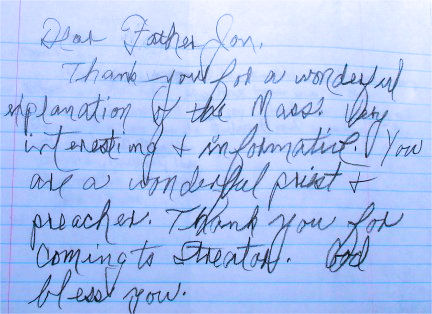 Dear Father Jon,
Thank you for a wonderful
explanation of the Mass. Very
interesting & informative. You
are a wonderful priest &
preacher. Thank you for
coming to Streator. God
bless you.